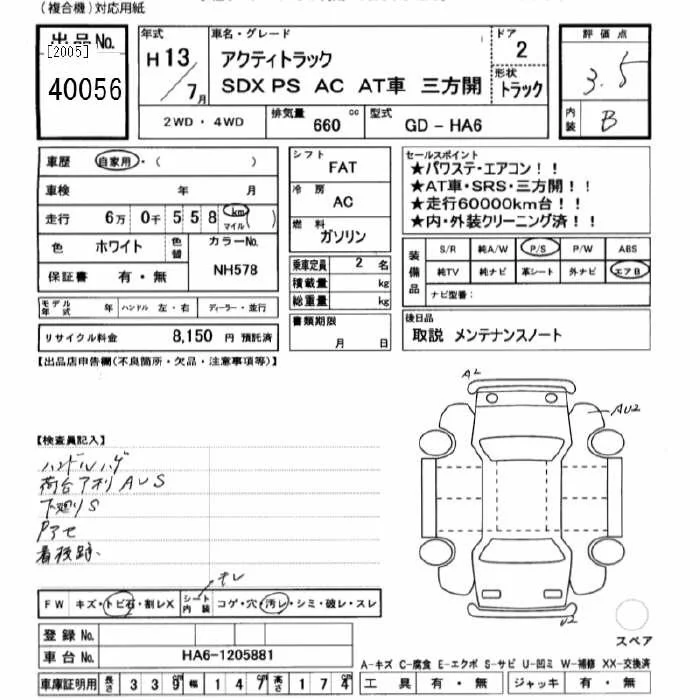 (複合機)対応用紙
出品No.
[2005]
40056
年式
H13/7月
車名・グレード
アクティトラック
SDX PS AC AT車 三方開
ドア
2
形状
トラック
評価点
3.5
内装
B
2WD・4WD
排気量
660 cc
型式
GD-HA6
車歴 自家用・( )
車検 年 月
走行 6万 0千 5 5 8 km マイル ( )
色 ホワイト 色替 カラーNo.
保証書 有・無 NH578
モデル年式 年 ハンドル 左・右 ディーラー・並行
リサイクル料金 8,150 円 預託済
シフト
FAT
冷房
AC
燃料
ガソリン
乗車定員 2 名
積載量 kg
総重量 kg
書類期限
月 日
セールスポイント
★パワステ・エアコン!!
★AT車・SRS・三方開!!
★走行60000km台!!
★内・外装クリーニング済!!
装備品
S/R 純A/W P/S P/W ABS
純TV 純ナビ 革シート 外ナビ エアB
ナビ型番:
後日品
取説 メンテナンスノート
【出品店申告欄(不良箇所・欠品・注意事項等)】
【検査員記入】
ハンドルハゲ
荷台アオリAUS
下廻りS
Pアセ
看板跡
AL
AU2
U2
スペア
FW キズ・トビ石・割レX シート内装 コゲ・穴・汚レ・シミ・破レ・スレ
登録No.
車台No. HA6-1205881
車庫証明用 長さ 3 3 9 cm 幅 1 4 7 cm 高さ 1 7 4 cm
A-キズ C-腐食 E-エクボ S-サビ U-凹ミ W-補修 XX-交換済
工具 有・無 ジャッキ 有・無